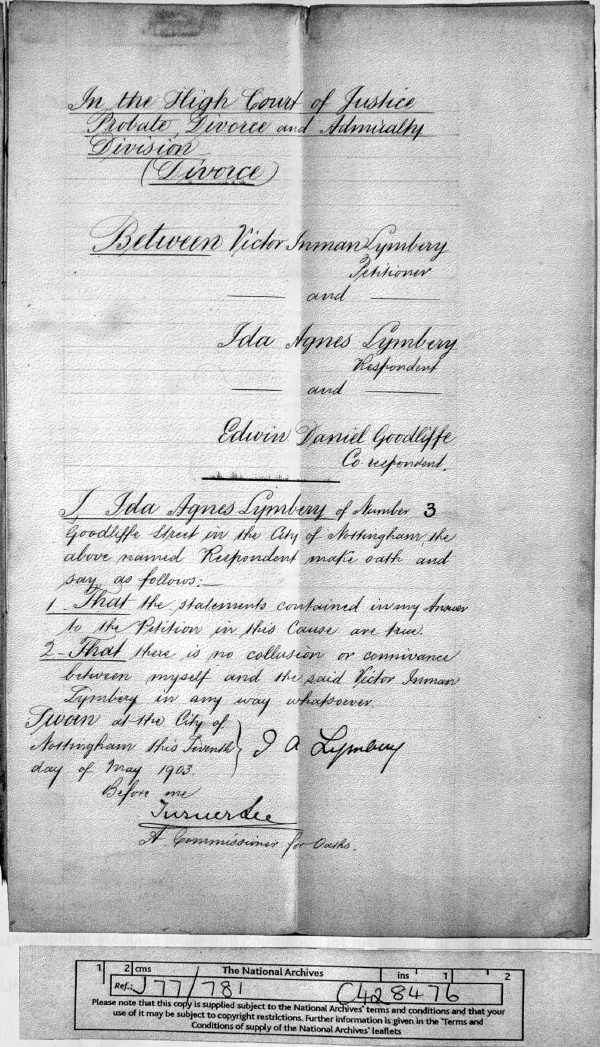 In the High Court of Justice
Probate Divorce and Admiralty
Division
(Divorce)
Between Victor Inman Lymbery
Petitioner
and
Ida Agnes Lymbery
Respondent
and
Edwin Daniel Goodliffe
Co respondent.
I Ida Agnes Lymbery of Number 3
Goodliffe Street in the City of Nottingham the
above named Respondent make oath and
say as follows:—
1 - That the statements contained in my Answer
to the Petition in this Cause are true.
2 - That there is no collusion or connivance
between myself and the said Victor Inman
Lymbery in any way whatsoever.
Swan at the City of
Nottingham this Seventh
day of May 1903.
I A Lymbery
Before me
Turner Lee
A Commissioner for Oaths.
1 2 cms The National Archives ins 1 2
Ref.: J77/781 C428476
Please note that this copy is supplied subject to the National Archives' terms and conditions and that your
use of it may be subject to copyright restrictions. Further information is given in the 'Terms and
Conditions of supply of the National Archives' leaflets